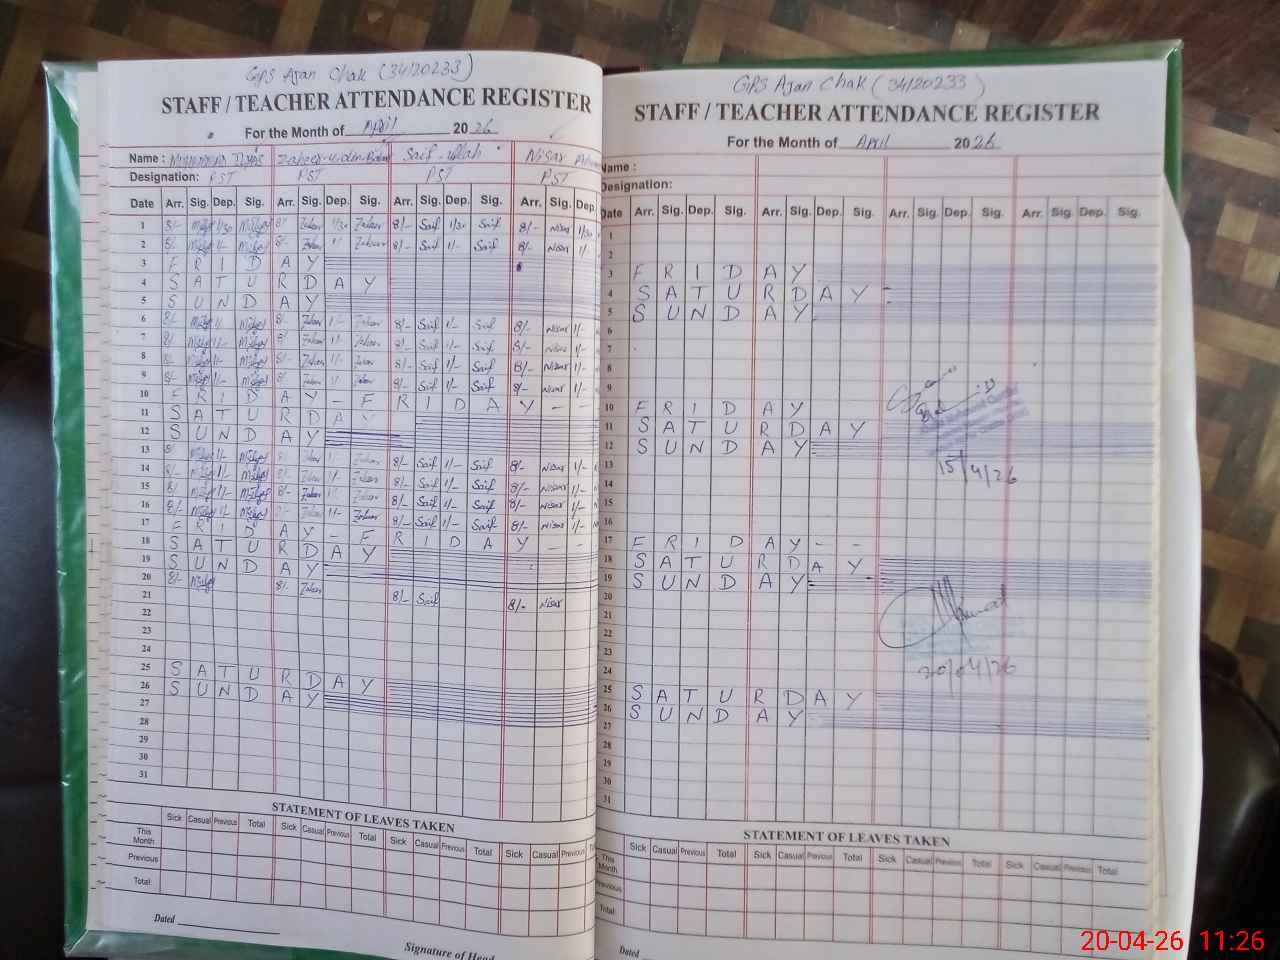 GPS Ajan Chak (34120233)
STAFF / TEACHER ATTENDANCE REGISTER
For the Month of April 2026
Name : Zaheer-u-din Saif-ullah Nisar
Designation: PST PST PST PST
Date Arr. Sig. Dep. Sig. Arr. Sig. Dep. Sig. Arr. Sig. Dep. Sig. Arr. Sig. Dep.
1 8/- 1/30 8/- Zaheer 1/30 Zaheer 8/- Saif 1/30 Saif 8/- Nisar 1/30
2 8/- 1/- 8/- Zaheer 1/- Zaheer 8/- Saif 1/- Saif 8/- Nisar 1/-
3 F R I D A Y
4 S A T U R D A Y
5 S U N D A Y
6 8/- 1/- 8/- Zaheer 1/- Zaheer 8/- Saif 1/- Saif 8/- Nisar 1/-
7 8/- 1/- 8/- Zaheer 1/- Zaheer 8/- Saif 1/- Saif 8/- Nisar 1/-
8 8/- 1/- 8/- Zaheer 1/- Zaheer 8/- Saif 1/- Saif 8/- Nisar 1/-
9 8/- 1/- 8/- Zaheer 1/- Zaheer 8/- Saif 1/- Saif 8/- Nisar 1/-
10 F R I D A Y - F R I D A Y - -
11 S A T U R D A Y
12 S U N D A Y
13 8/- 1/- 8/- Zaheer 1/- Zaheer 8/- Saif 1/- Saif 8/- Nisar 1/-
14 8/- 1/- 8/- Zaheer 1/- Zaheer 8/- Saif 1/- Saif 8/- Nisar 1/-
15 8/- 1/- 8/- Zaheer 1/- Zaheer 8/- Saif 1/- Saif 8/- Nisar 1/-
16 8/- 1/- 8/- Zaheer 1/- Zaheer 8/- Saif 1/- Saif 8/- Nisar 1/-
17 F R I D A Y - F R I D A Y - -
18 S A T U R D A Y
19 S U N D A Y
20 8/- 8/- Zaheer 8/- Saif 8/- Nisar
21
22
23
24
25 S A T U R D A Y
26 S U N D A Y
27
28
29
30
31
STATEMENT OF LEAVES TAKEN
Sick Casual Previous Total Sick Casual Previous Total Sick Casual Previous Total Sick Casual Previous
This Month
Previous
Total
Dated
Signature of Head
GPS Ajan Chak (34120233)
STAFF / TEACHER ATTENDANCE REGISTER
For the Month of April 2026
Name :
Designation:
Date Arr. Sig. Dep. Sig. Arr. Sig. Dep. Sig. Arr. Sig. Dep. Sig. Arr. Sig. Dep. Sig.
1
2
3 F R I D A Y
4 S A T U R D A Y
5 S U N D A Y
6
7
8
9
10 F R I D A Y
11 S A T U R D A Y
12 S U N D A Y
13 15/4/26
14
15
16
17 F R I D A Y - -
18 S A T U R D A Y
19 S U N D A Y
20
21
22
23
24 20/04/26
25 S A T U R D A Y
26 S U N D A Y
27
28
29
30
31
STATEMENT OF LEAVES TAKEN
Sick Casual Previous Total Sick Casual Previous Total Sick Casual Previous Total Sick Casual Previous Total
This Month
Previous
Total
Dated
20-04-26 11:26